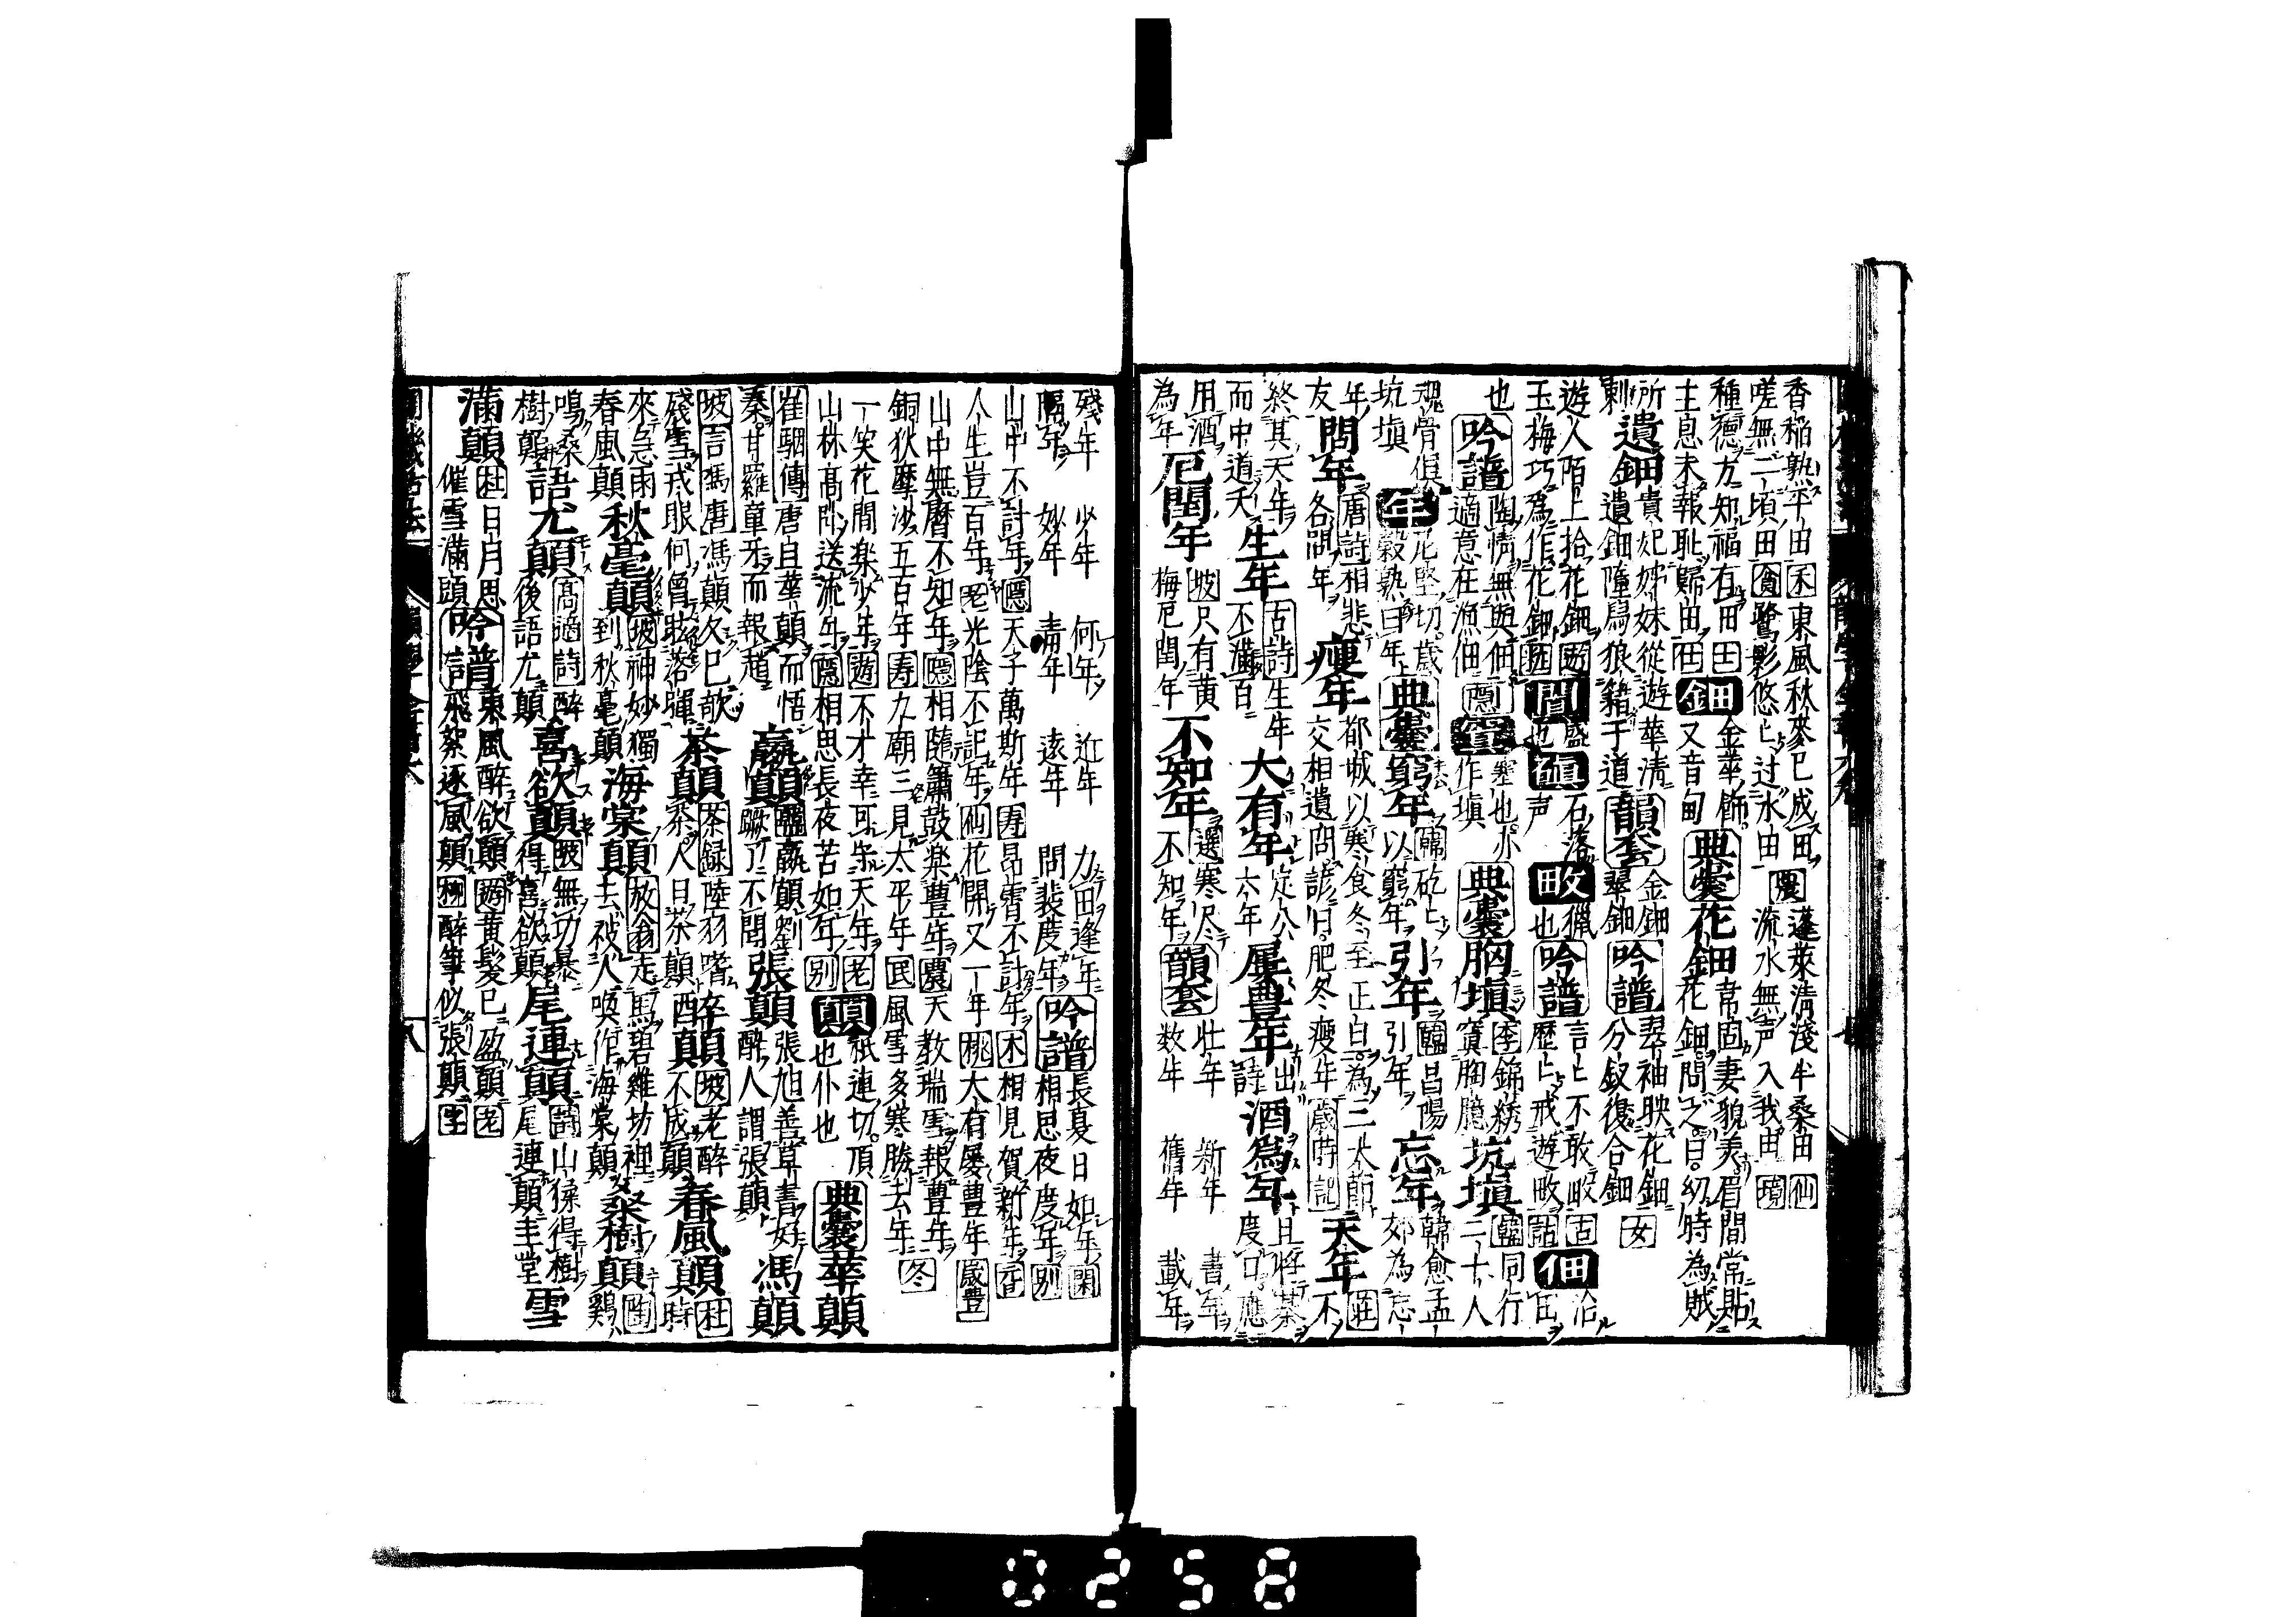 香稲熟平田禾東風秋麥已成田農蓬萊清淺半桑田仙
嗟無二頃田貪鷺影悠〻过水田流水無声入我田
種德方知福有田士鈿金華飾又音甸典囊花鈿韋固妻貌美眉間常貼
主息未報耻歸田仕花鈿問之曰幼時為賊
所遺鈿貴妃姊妹從遊華清韻套金鈿吟譜翠袖映花鈿女
刺遺鈿墮舄狼籍于道翠鈿分釵復合鈿
遊人陌上拾花鈿遊闐盛也磌石落声畋獵也吟譜言〻不敢畋古佃治田
玉梅巧為作花鈿歷〻戒遊畋
也吟譜陶情無與佃隱塞也亦作塡典囊胸塡李錦綉坑塡同行
適意在漁佃寘胸臆二十人
坑塡年尼堅切歲穀熟曰年典囊窮年以窮年引年引年昌陽忘年韓愈孟郊為忘
年問年唐詩相悲各問年瘦年都城以寒食冬至正旦為三大節歲時記天年
友交相遺問諺曰肥冬瘦年不
終其天年生年古詩生年大有年定公六年屢豊年詩酒為年且將棊度口應
而中道夭不滿百
用酒為年厄閏年坡只有黄梅厄閏年不知年選寒尽不知年韻套壮年新年書年
数年舊年載年
殘年少年何年近年力田逢年吟譜長夏日如年閑
隔年妙年青年遠年問裴度年相思夜度年別
山中不討年隱天子萬斯年寿昂霄不計年木相見賀新年
人生豈百年老光陰不記年仙花開又一年桃大有屡豊年歳豊
山中無曆不知年隱相隨簫鼓楽豊年農天教瑞雪報豊年冬
銅狄摩沙五百年寿九廟三見太平年民風雪多寒勝去年
一笑花間楽少年遊不才幸可朱天年老顚祇連切頂也仆也典囊華顚
山林高臥送流年隱相思長夜苦如年別
崔駰傳唐且華顚而悟嬴顚嬴顚劉蹶了不聞張顚張旭善草書好馮顚
秦甘羅童牙而報趙醉人謂張顚
坡言馮唐馮顚久已欹茶顚茶録陸羽嗜茶人曰茶顚酒顚坡老醉不成顚春風顚杜時
殘雪戎服何曾眩落彈
來急雨秋毫顚坡神妙獨到秋毫顚海棠顚放翁走馬碧雞坊裡桑樹顚陶鷄
春風顚去被人喚作海棠顚
鳴桑樹顚語尤顚高適詩醉後語尤顚喜欲顚無功暴得喜欲顚尾連顚山猿得樹尾連顚圭堂雪
滿顚杜日月思催雪滿頭吟譜東風醉欲顚遊黄髮已盈顚老
飛絮逐風顚柳醉筆似張顚
0258